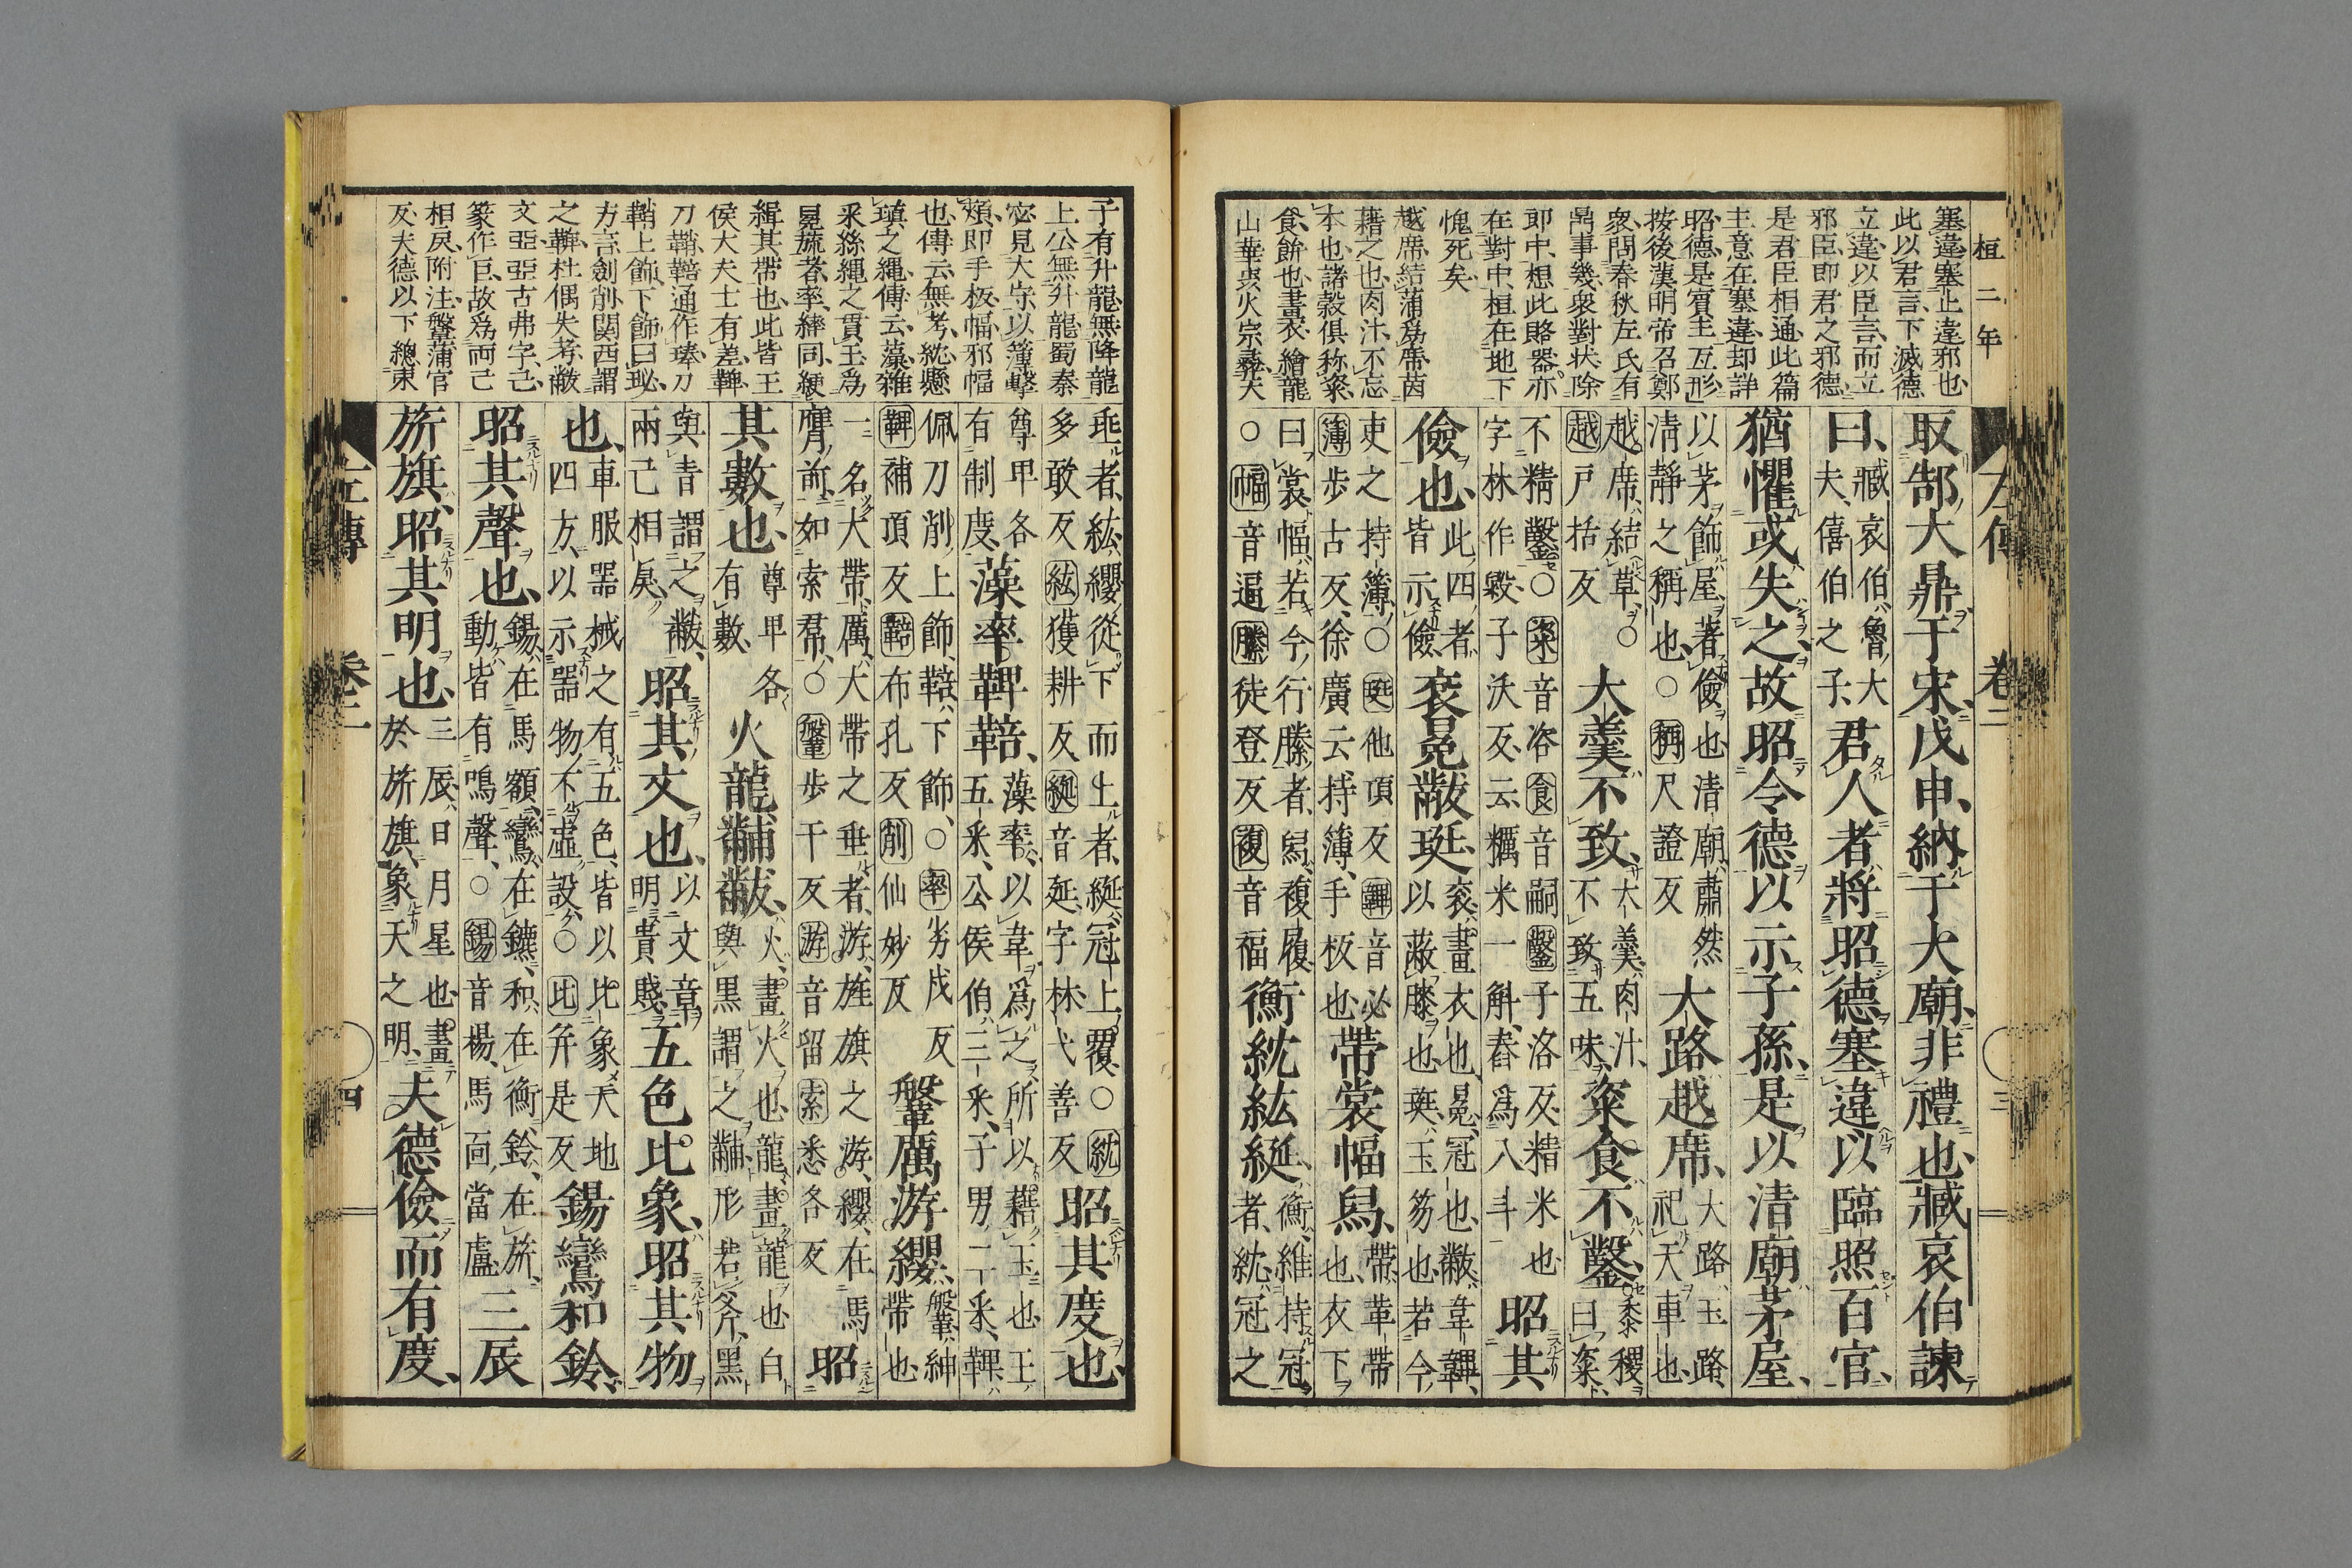 桓二年
塞違塞止違邪也
此以君言下滅德
立違以臣言而立
邪臣卽君之邪德
是君臣相通此篇
主意在塞違却詳
昭德是賓主互形
按後漢明帝召鄭
衆問春秋左氏有
昺事幾衆對狀除
卽中想此賂器亦
在對中桓在地下
愧死矣
越席結蒲爲席茵
藉之也肉汁不忘
本也諸穀俱称粢
食餅也畫衣繪龍
山華虫火宗彝天
取郜大鼎于宋戊申納于大廟非禮也臧哀伯諫
曰臧哀伯魯大
夫僖伯之子君人者將昭德塞違以臨照百官
猶懼或失之故昭令德以示子孫是以淸廟茅屋
以茅飾屋著儉也淸廟肅然
淸靜之稱也○稱尺證反大路越席大路玉路
祀天車也
越席結草○
越戶括反大羹不致大羹肉汁
不致五味粢食不鑿黍稷
曰粢
不精鑿○粢音咨食音嗣鑿子洛反精米也
字林作毇子沃反云糲米一斛舂爲八斗昭其
儉也此四者
皆示儉袞冕黻珽袞畫衣也冕冠也黻韋韠
以蔽膝也珽玉笏也若今
吏之持簿○珽他頂反韠音必
簿步古反徐廣云持簿手板也帶裳幅舄帶革帶
也衣下
曰裳幅若今行縢者舄複履
○幅音逼縢徒登反複音福衡紞紘綖衡維持冠
者紞冠之
左傳 卷二 三
子有升龍無降龍
上公無升龍蜀秦
宓見大守以簿擊
頰卽手板幅邪幅
也傳云無考紞懸
瑱之繩傳云藻雜
采絲繩之貫玉爲
冕旒者率繂同綆
緝其帶也此皆王
侯大夫士有差鞞
刀鞘鞛通作琫刀
鞘上飾下飾曰珌
方言劍削関西謂
之鞞杜偶失考黻
文亞亞古弗字己
篆作巨故爲兩己
相戾附注鞶蒲官
反夫德以下總束
乖者紘纓從下而上者綖冠上覆○紞
多敢反紘獲耕反綖音延字林弋善反昭其度也
尊卑各
有制度藻率鞞鞛藻率以韋爲之所以藉玉也王
五采公侯伯三采子男二采鞞
佩刀削上飾鞛下飾○率劣戌反
鞞補頂反鞛布孔反削仙妙反鞶厲游纓鞶紳
帶也
一名大帶厲大帶之垂者游旌旗之游纓在馬
膺前如索帬○鞶步干反游音留索悉各反昭
其數也尊卑各
有數火龍黼黻火畫火也龍畫龍也白
與黑謂之黼形若斧黑
與靑謂之黻
兩己相戾昭其文也以文章
明貴賤五色比象昭其物
也車服器械之有五色皆以比象天地
四方以示器物不虛設○比幷是反鍚鸞和鈴
昭其聲也鍚在馬額鸞在鑣和在衡鈴在旂
動皆有鳴聲○鍚音楊馬面當盧三辰
旂旗昭其明也三辰日月星也畫
於旂旗象天之明夫德儉而有度
左傳 卷二 四